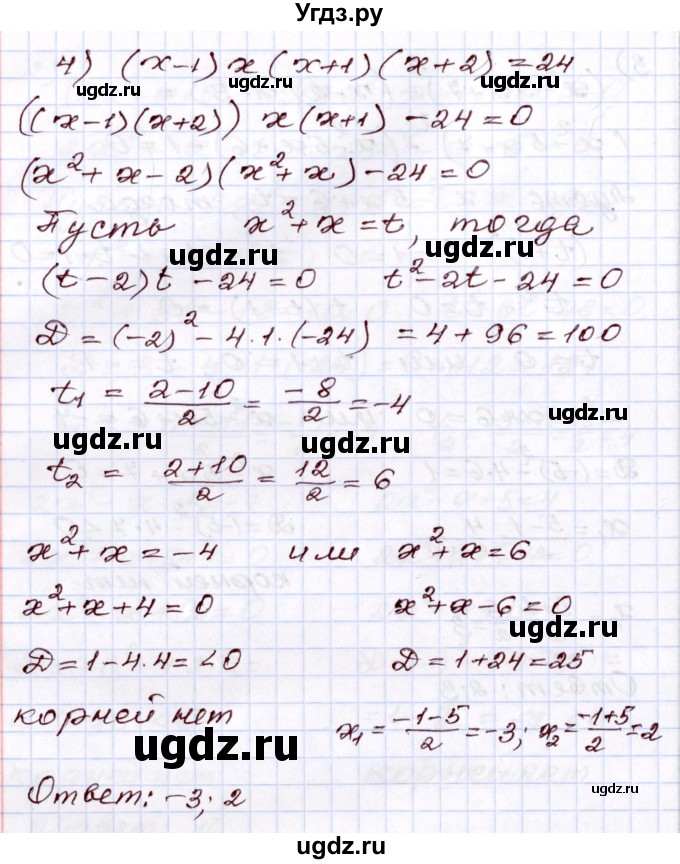 Угдз.ру
4) (x-1) x (x+1) (x+2) = 24
((x-1)(x+2)) x(x+1) - 24 = 0
(x² + x - 2)(x² + x) - 24 = 0
Пусть x² + x = t, тогда
(t-2)t - 24 = 0 t² - 2t - 24 = 0
D = (-2)² - 4·1·(-24) = 4 + 96 = 100
t₁ = (2-10)/2 = -8/2 = -4
t₂ = (2+10)/2 = 12/2 = 6
x² + x = -4 или x² + x = 6
x² + x + 4 = 0 x² + x - 6 = 0
D = 1 - 4·4 = <0 D = 1 + 24 = 25
корней нет x₁ = (-1-5)/2 = -3; x₂ = (-1+5)/2 = 2
Ответ: -3; 2
ugdz.ru
ugdz.ru
ugdz.ru
ugdz.ru
ugdz.ru
ugdz.ru
ugdz.ru
ugdz.ru
ugdz.ru
ugdz.ru
ugdz.ru